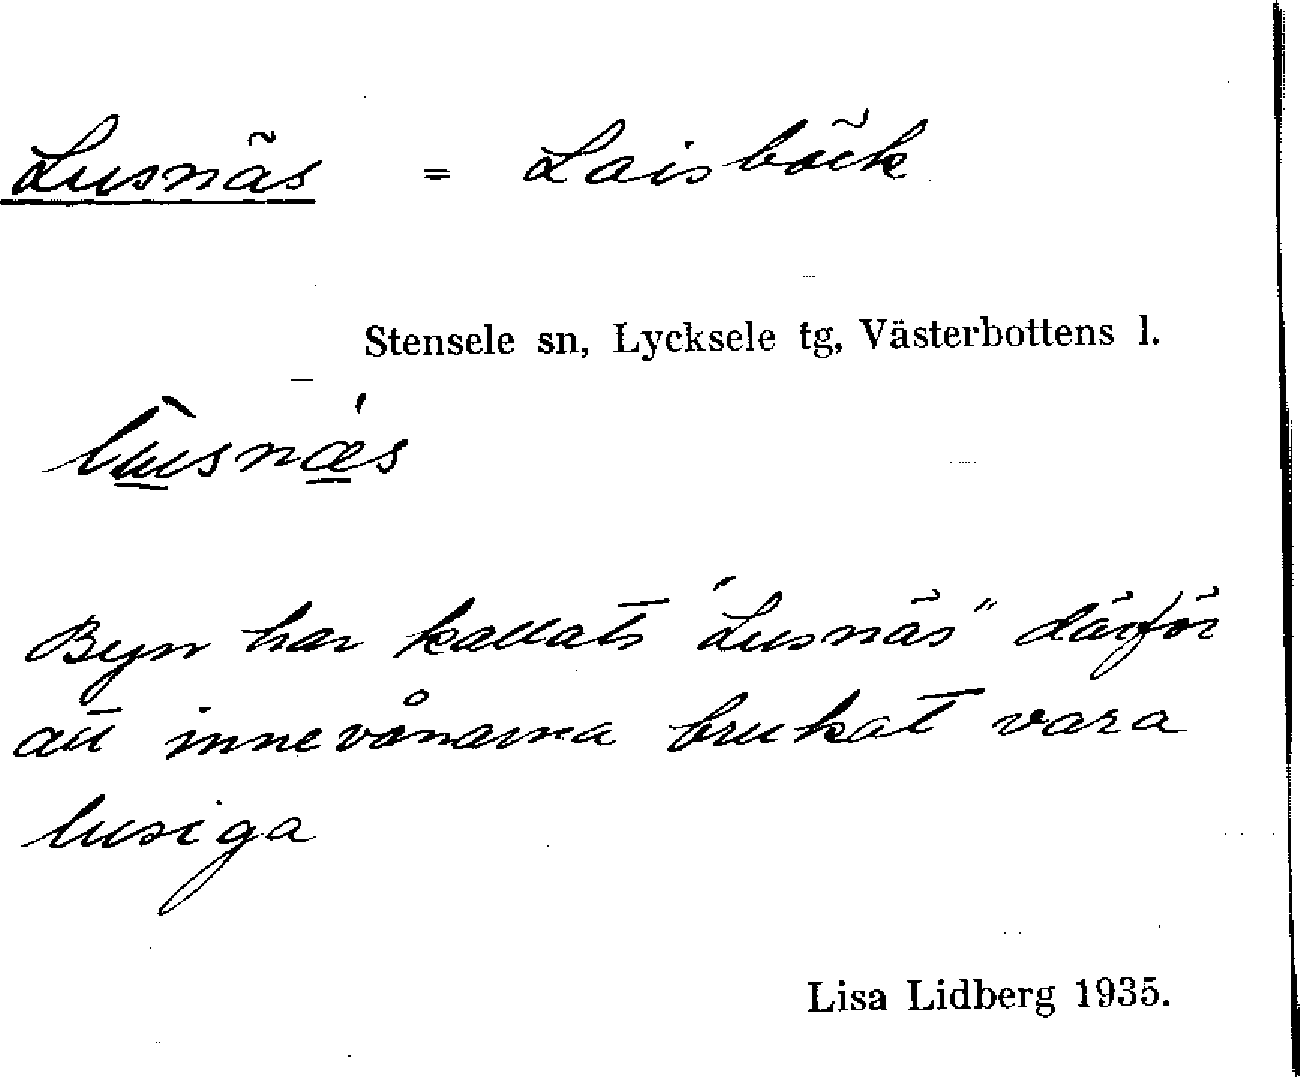 Lusnäs = Laisbäck
Stensele sn, Lycksele tg, Västerbottens l.
lu̲snæ̲s
Byn har kallats "Lusnäs" därför
att innevånarna brukat vara
lusiga
Lisa Lidberg 1935.